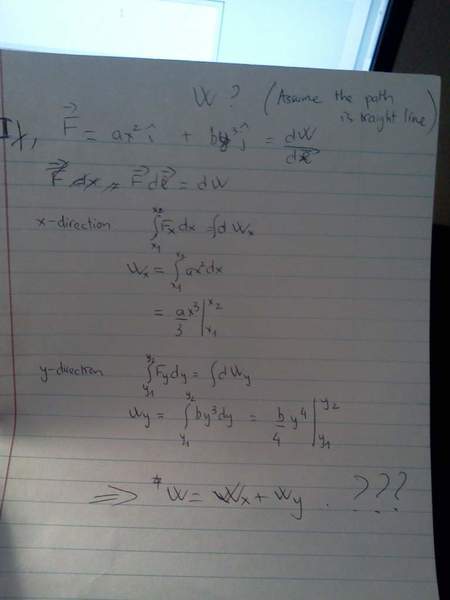 W ? (Assume the path
is traight line)
I), F⃗ = ax² î + by³ ĵ = dW/
F⃗ dr⃗ = dW
x-direction ∫_{x₁}^{x₂} Fx dx = ∫ d Wx
Wx = ∫_{x₁}^{x₂} ax² dx
= a/3 x³ |_{x₁}^{x₂}
y-direction ∫_{y₁}^{y₂} Fy dy = ∫ d Wy
Wy = ∫_{y₁}^{y₂} by³ dy = b/4 y⁴ |_{y₁}^{y₂}
⇒ * W = Wx + Wy . ???